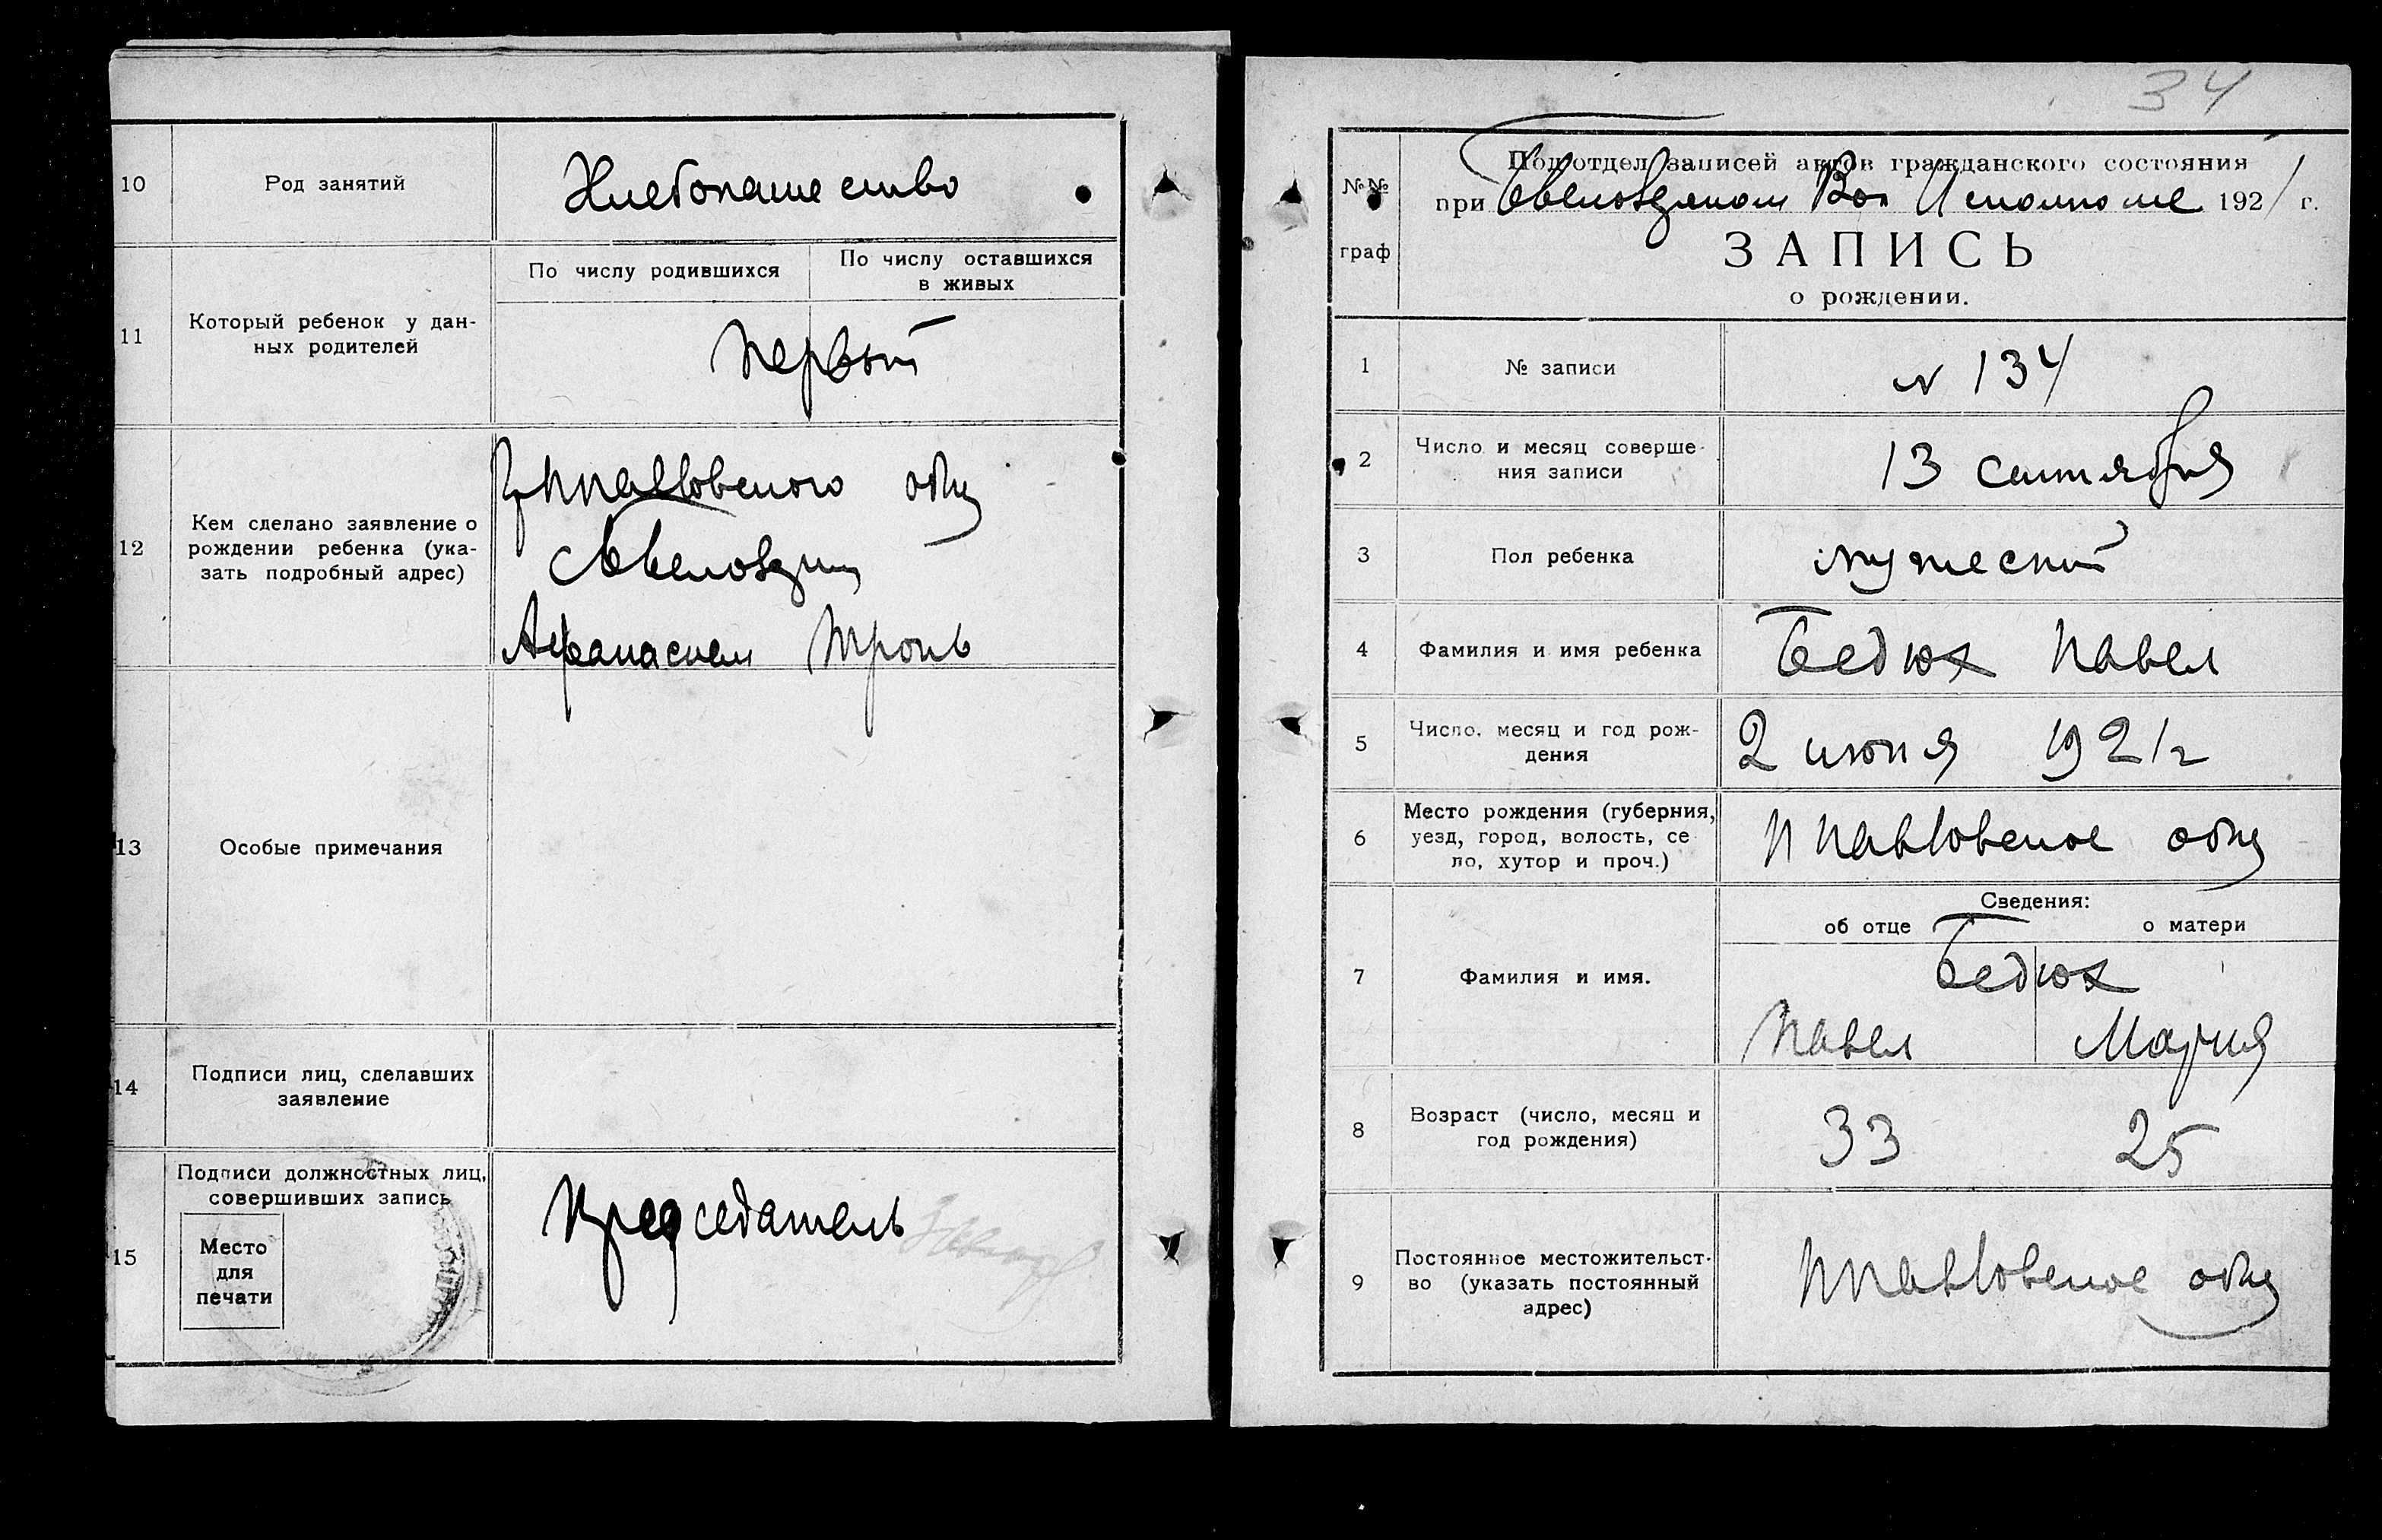 10
Род занятий
Хлебопашество
11
Который ребенок у дан-
ных родителей
По числу родившихся
По числу оставшихся
в живых
Первый
12
Кем сделано заявление о
рождении ребенка (ука-
зать подробный адрес)
общ
Афанасием
13
Особые примечания
14
Подписи лиц, сделавших
заявление
15
Подписи должностных лиц,
совершивших запись
Место
для
печати
Председатель
34
№№
граф
Под'отдел записей актов гражданского состояния
при Вол Исполкоме 1921 г.
ЗАПИСЬ
о рождении.
1
№ записи
N 134
2
Число и месяц соверше-
ния записи
13 сентября
3
Пол ребенка
мужеский
4
Фамилия и имя ребенка
Бедюх Павел
5
Число, месяц и год рож-
дения
2 июня 1921 г
6
Место рождения (губерния,
уезд, город, волость, се
ло, хутор и проч.)
общ
Сведения:
об отце
о матери
7
Фамилия и имя.
Бедюх
Павел
Мария
8
Возраст (число, месяц и
год рождения)
33
25
9
Постоянное местожительст-
во (указать постоянный
адрес)
общ